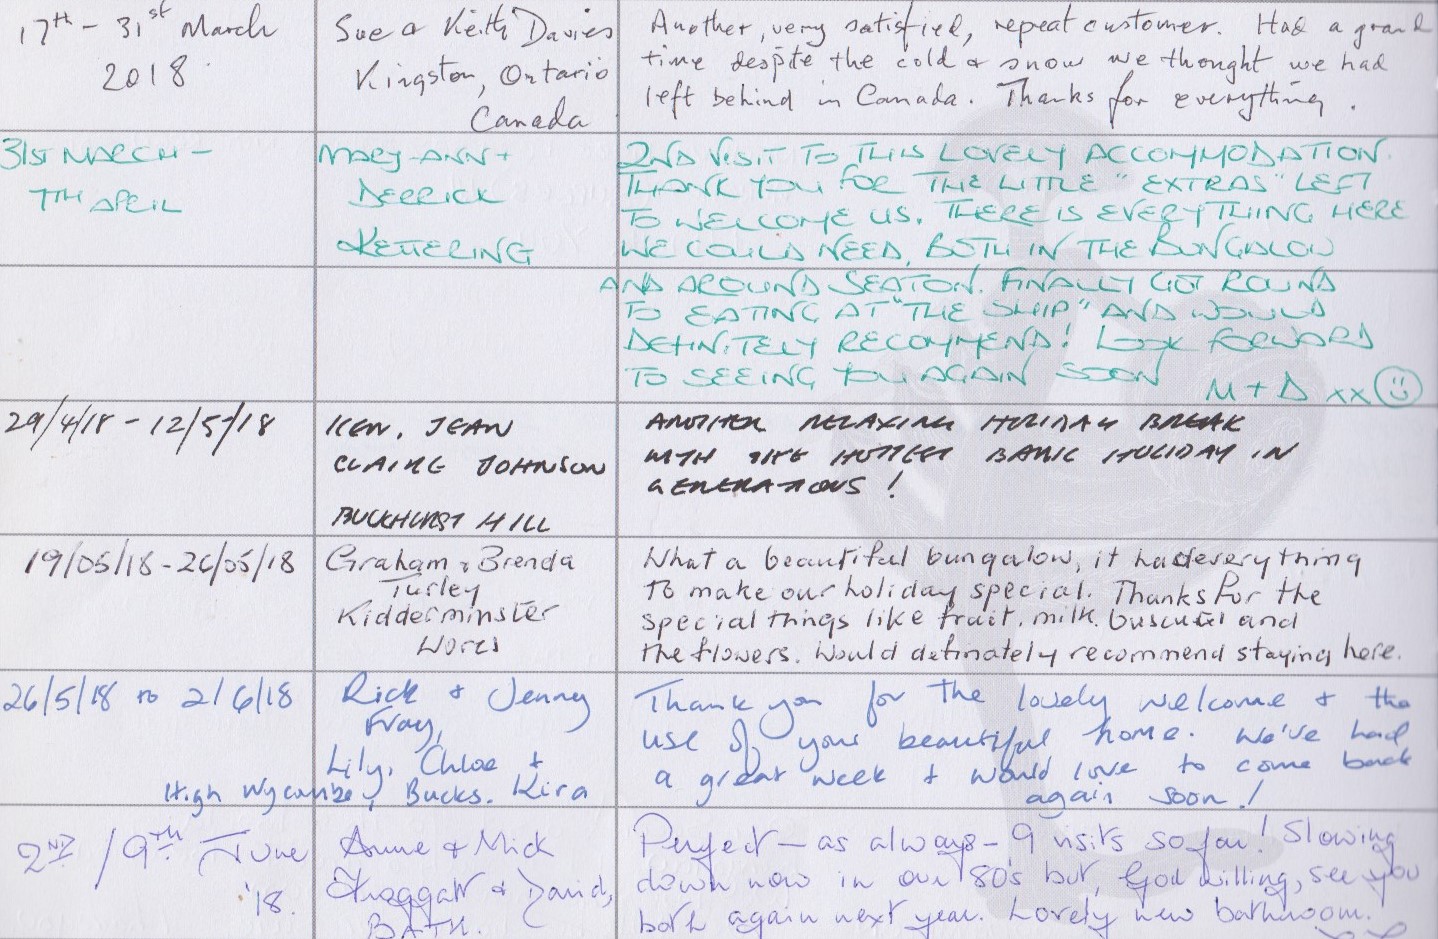 17th - 31st March
2018
Sue & Keith Davies
Kingston, Ontario
Canada
Another, very satisfied, repeat customer. Had a grand
time despite the cold & snow we thought we had
left behind in Canada. Thanks for everything.
31ST MARCH -
7TH APRIL
MARY-ANN +
DERRICK
KETTERING
2ND VISIT TO THIS LOVELY ACCOMMODATION.
THANK YOU FOR THE LITTLE "EXTRAS" LEFT
TO WELCOME US. THERE IS EVERYTHING HERE
WE COULD NEED, BOTH IN THE BUNGALOW
AND AROUND SEATON. FINALLY GOT ROUND
TO EATING AT "THE SHIP" AND WOULD
DEFINITELY RECOMMEND! LOOK FORWARD
TO SEEING YOU AGAIN SOON
M + D xx
29/4/18 - 12/5/18
KEN, JEAN
CLAIRE JOHNSON
BUCKHURST HILL
ANOTHER RELAXING HOLIDAY BREAK
WITH THE HOTTEST BANK HOLIDAY IN
GENERATIONS!
19/05/18 - 26/05/18
Graham & Brenda
Turley
Kidderminster
Worcs
What a beautiful bungalow, it had everything
to make our holiday special. Thanks for the
special things like fruit, milk, and
the flowers. Would definately recommend staying here.
26/5/18 to 2/6/18
Rick & Jenny
Fray,
Lily, Chloe &
High Wycombe, Bucks. Kira
Thank you for the lovely welcome & the
use of your beautiful home. We've had
a great week & would love to come back
again soon!
2ND / 9TH June
'18.
Anne & Mick
& David,
BATH.
Perfect - as always - 9 visits so far! Slowing
down now in our 80's but, God willing, see you
both again next year. Lovely new bathroom.